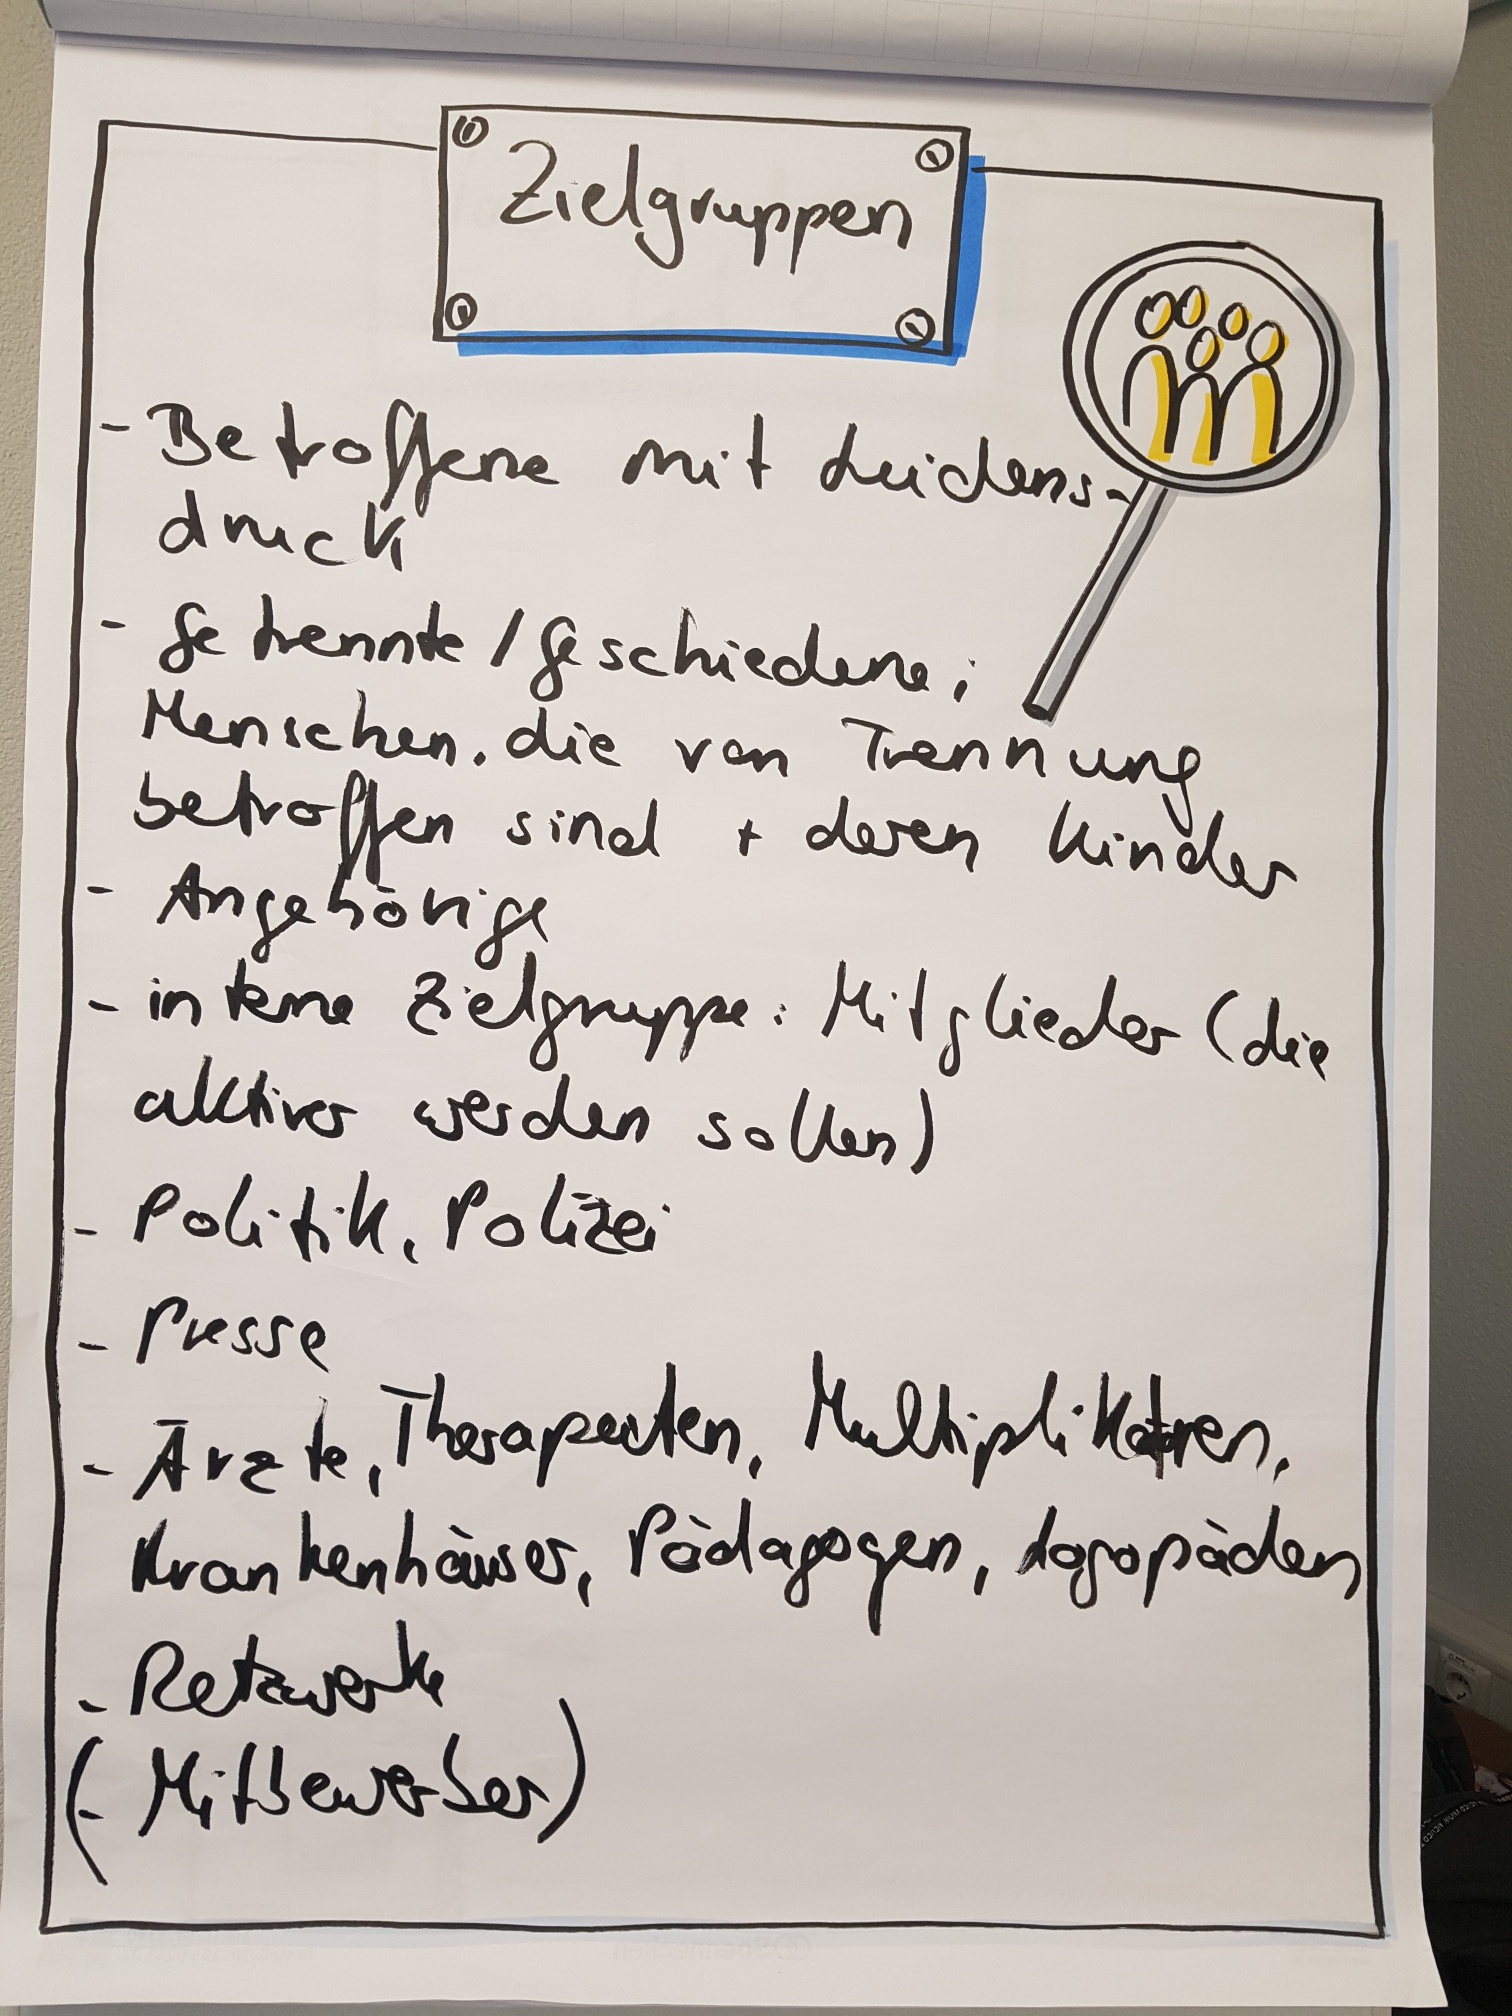 Zielgruppen
- Betroffene mit Leidens-
druck
- Getrennte / Geschiedene;
Menschen, die von Trennung
betroffen sind + deren Kinder
- Angehörige
- interne Zielgruppe: Mitglieder (die
aktiver werden sollen)
- Politik, Polizei
- Presse
- Ärzte, Therapeuten, Multiplikatoren,
Krankenhäuser, Pädagogen, Logopäden
- Netzwerke
(- Mitbewerber)